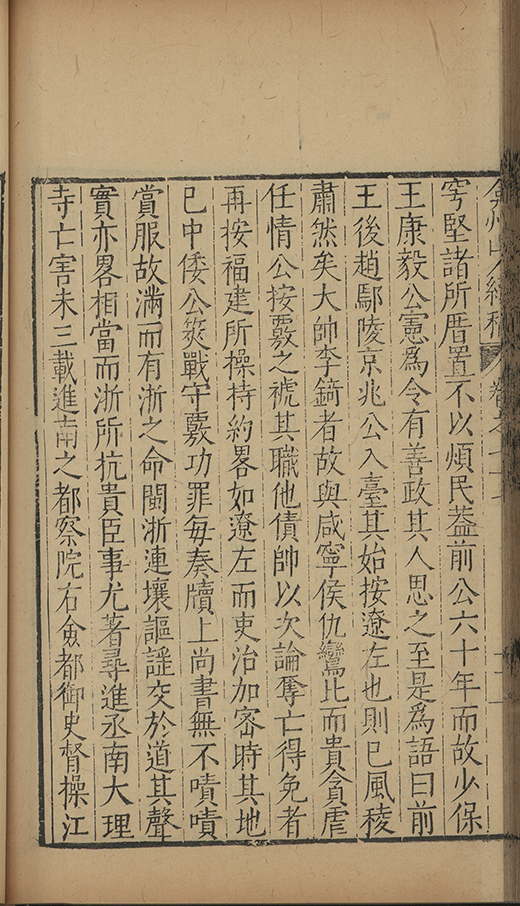 弇州山人續稿 卷之
穹堅諸所厝置不以煩民蓋前公六十年而故少保
王康毅公憲爲令有善政其人思之至是爲語曰前
王後趙鄢陵京兆公入臺其始按遼左也則已風稜
肅然矣大帥李錡者故與咸寧侯仇鸞比而貴貪虐
任情公按覈之褫其職他債帥以次論奪亡得免者
再按福建所操持約畧如遼左而吏治加密時其地
已中倭公筴戰守覈功罪每奏牘上尚書無不嘖嘖
賞服故滿而有浙之命閩浙連壤謳謡交於道其聲
實亦畧相當而浙所抗貴臣事尤著尋進丞南大理
寺亡害未三載進南之都察院右僉都御史督操江